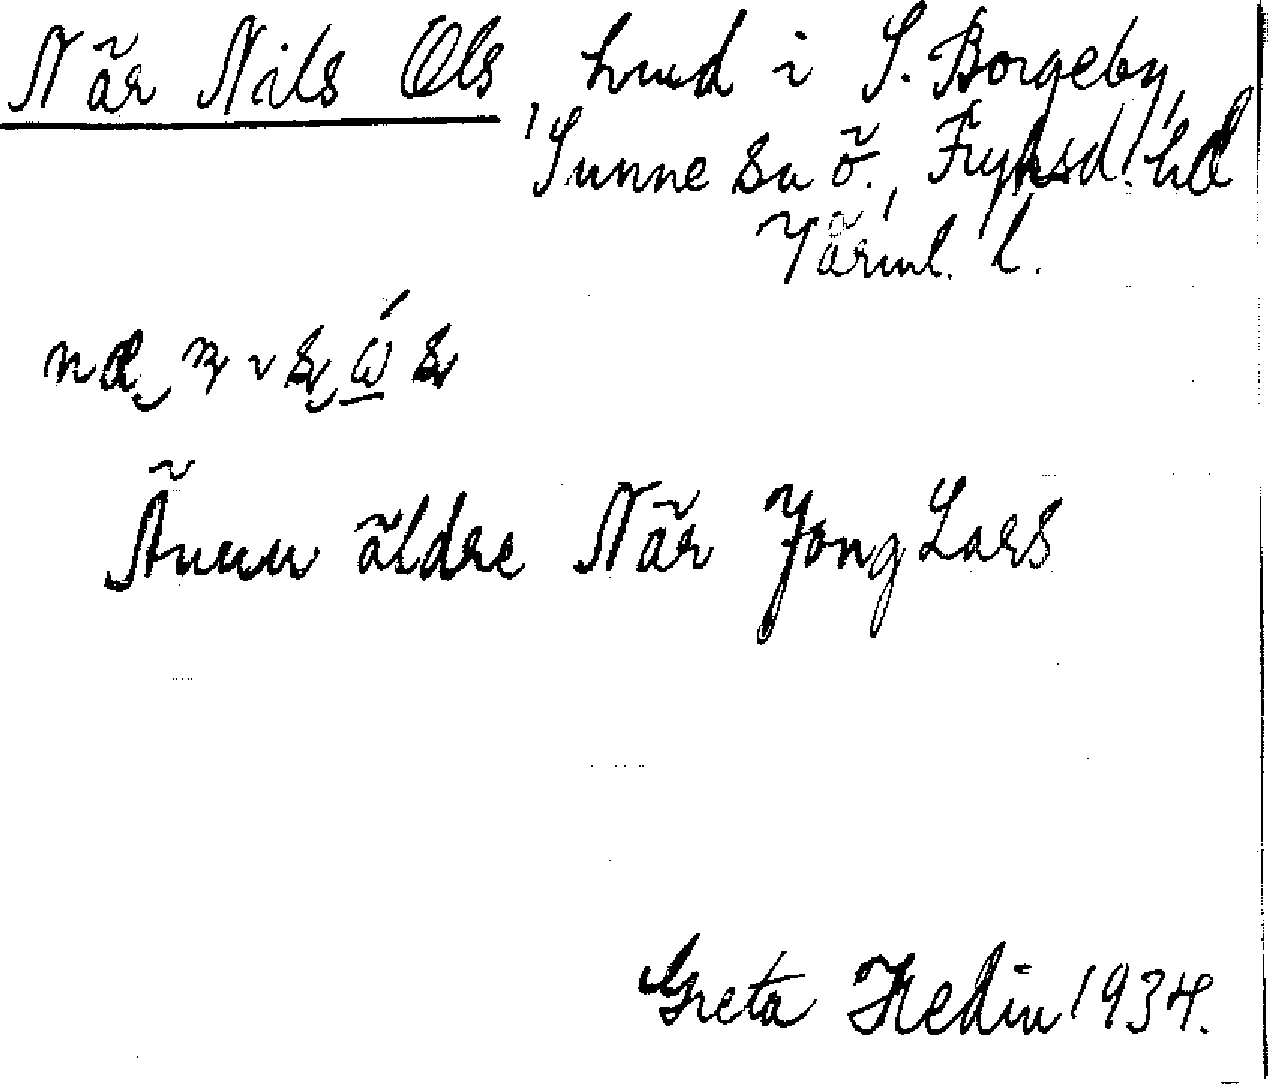 När Nils Ols, hmd i S. Borgeby,
Sunne sn ö., Fryksd. hd
Värml. l.
Ännu äldre När Jong Lars
Greta Hedin 1934.